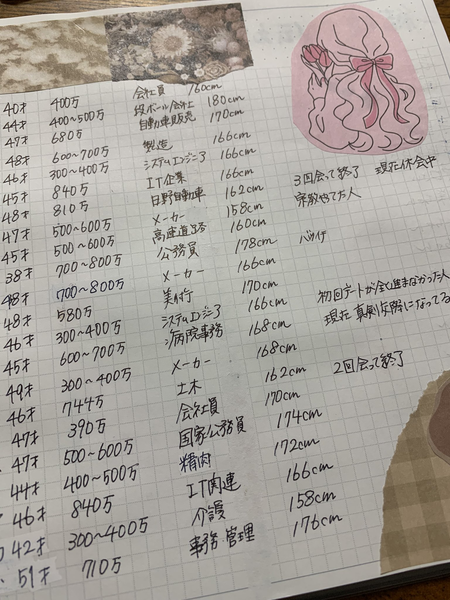 40才 400万 会社員 160cm
44才 400~500万 段ボール会社 180cm
47才 680万 自動車販売 170cm
48才 600~700万 製造 166cm
46才 300~400万 システムエンジニア 166cm
45才 840万 IT企業 166cm 3回会って終了 現在休会中
48才 810万 日野自動車 162cm 宗教やてた人
47才 500~600万 メーカー 158cm
45才 500~600万 高速道路 160cm
38才 700~800万 公務員 178cm バツイチ
48才 700~800万 メーカー 166cm
48才 580万 美術 170cm 初回デートが全く進まなかった人
46才 300~400万 システムエンジニア 166cm 現在 真剣交際になってる
45才 600~700万 病院事務 168cm
49才 300~400万 メーカー 168cm
46才 744万 土木 162cm 2回会って終了
47才 390万 会社員 170cm
47才 500~600万 国家公務員 174cm
44才 400~500万 精肉 172cm
46才 840万 IT関連 166cm
42才 300~400万 介護 158cm
51才 710万 事務 管理 176cm